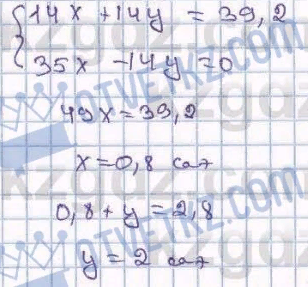 {14x + 14y = 39,2
35x - 14y = 0
49x = 39,2
x = 0,8 сағ
0,8 + y = 2,8
y = 2 сағ
OTVETKZ.COM